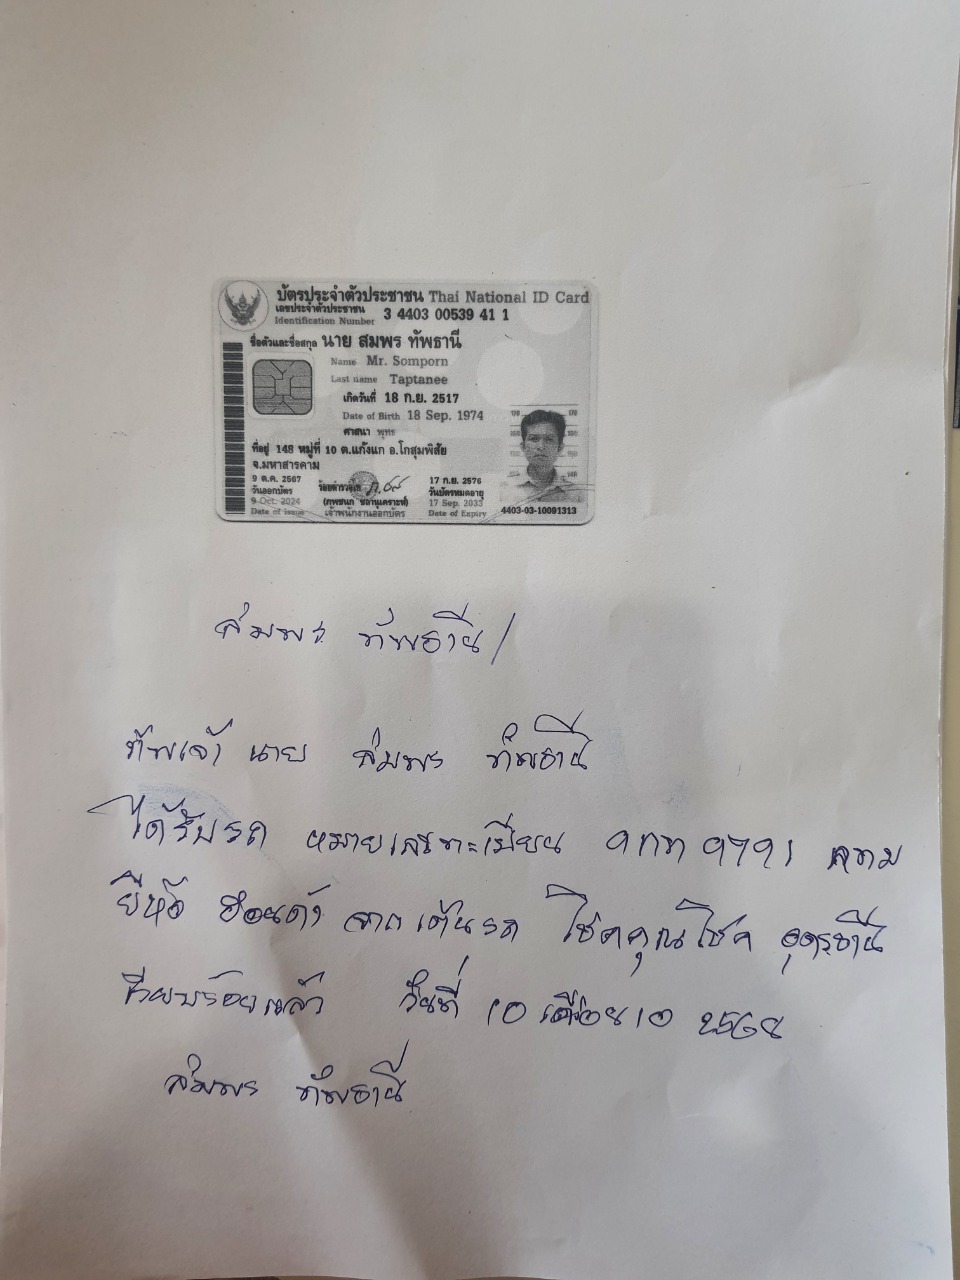 บัตรประจำตัวประชาชน Thai National ID Card
เลขประจำตัวประชาชน
Identification Number 3 4403 00539 41 1
ชื่อตัวและชื่อสกุล นาย สมพร ทัพธานี
Name Mr. Somporn
Last name Taptanee
เกิดวันที่ 18 ก.ย. 2517
Date of Birth 18 Sep. 1974
ศาสนา พุทธ
ที่อยู่ 148 หมู่ที่ 10 ต.แก้งแก อ.โกสุมพิสัย
จ.มหาสารคาม
9 ต.ค. 2567
วันออกบัตร
9 Oct. 2024
Date of Issue
เจ้าพนักงานออกบัตร
17 ก.ย. 2576
วันบัตรหมดอายุ
17 Sep. 2033
Date of Expiry
4403-03-10091313
สมพร ทัพธานี
นาย สมพร ทัพธานี
ได้รับรถ หมายเลขทะเบียน
ยี่ห้อ ฮอนด้า จากเต้นรถ โชคคุณโชค อุดรธานี
เรียบร้อยแล้ว วันที่ 10 เดือน 10 2568
สมพร ทัพธานี